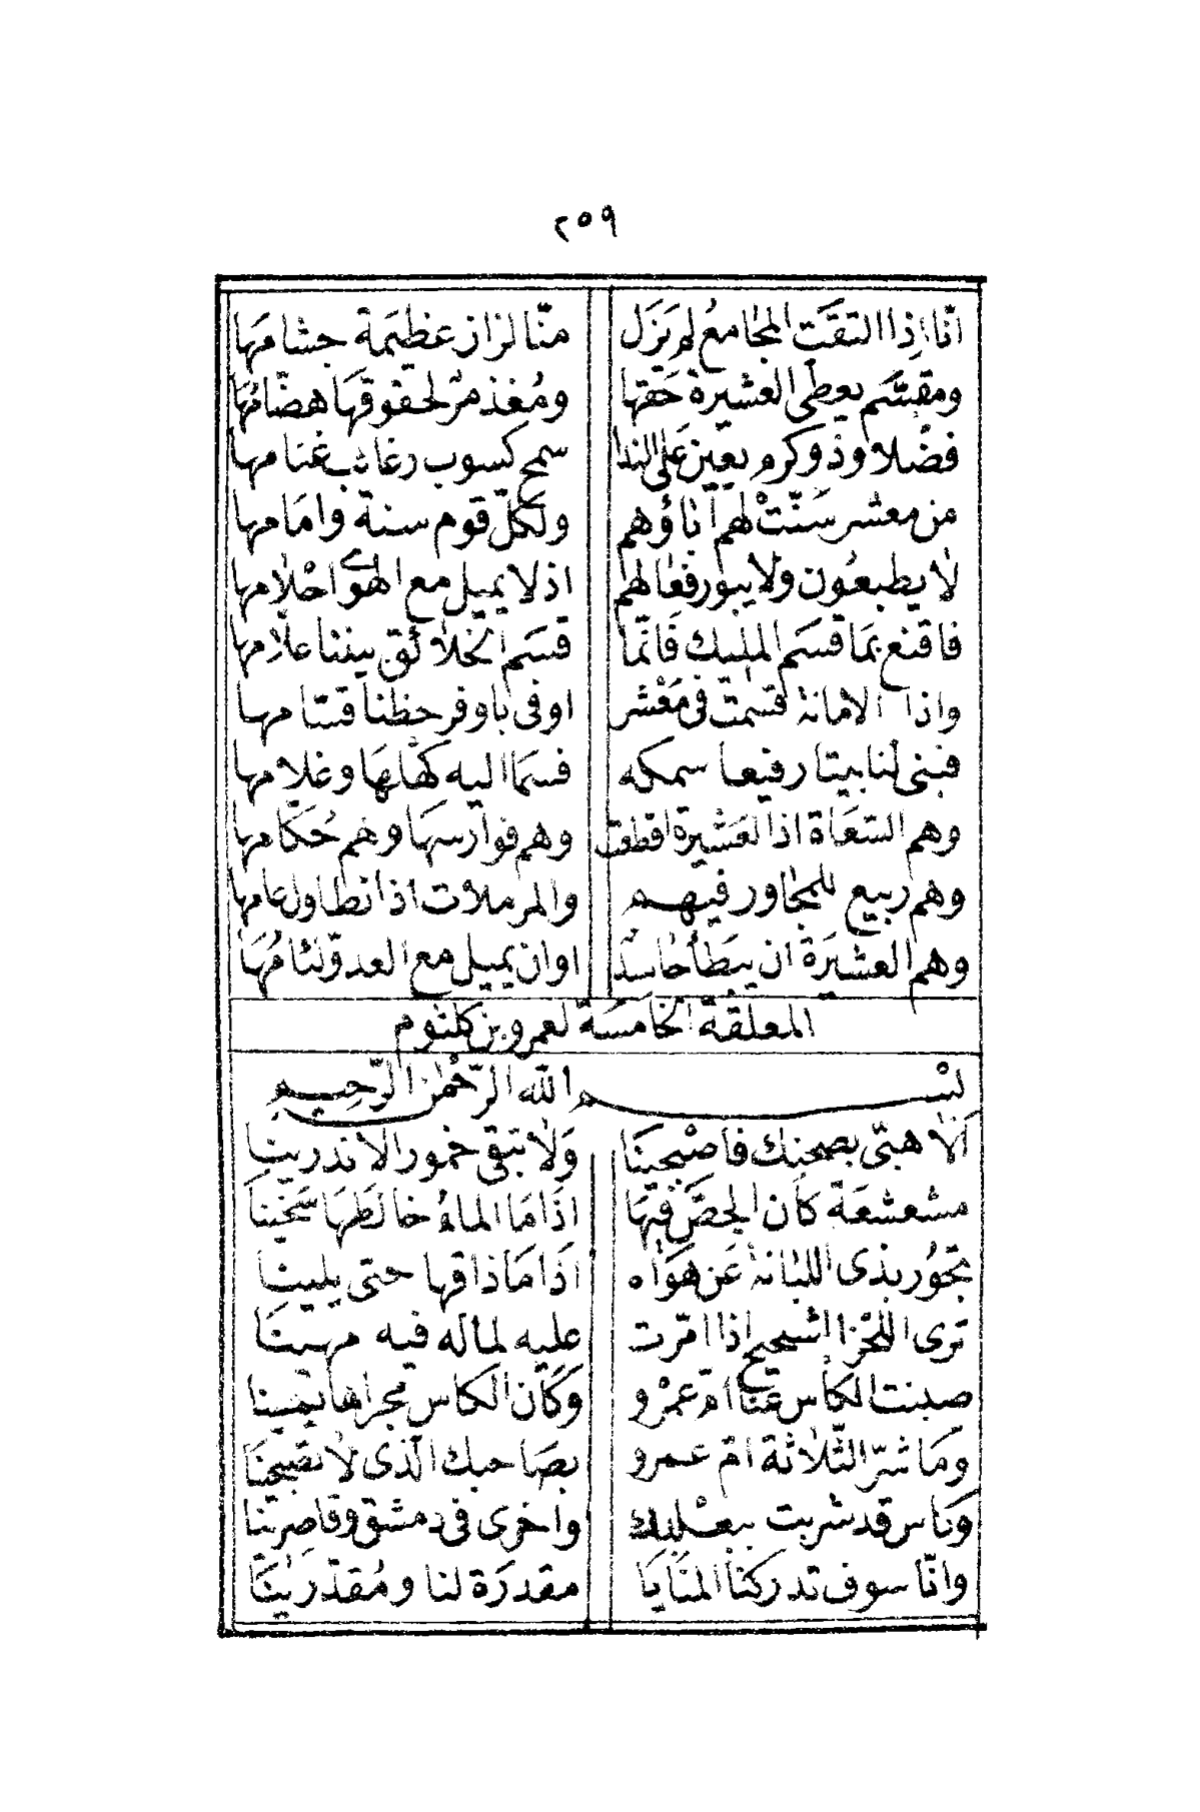 ٢٥٩
انّا اذا التقت المجامعُ لم يَزَل منّا لزاز عظيمة جشامها
ومقسّم يعطى العشيرة حقها ومُغذمرٌ لحقوقها هضّامُها
فضلا وذو كرم يعين على الندا سمح كسوب رغائب غنامها
من معشر سَنّتْ لهم آباؤهم ولكلّ قوم سنة وامامها
لا يطبعون ولا يبور فعالهم اذ لا يميل مع الهوى احلامها
فاقنع بما قسم المليك فانّما قسم الخلائق بيننا علامها
واذا الامانة قسمت فى معشر اوفى باوفر حظنا قسّامها
فبنى لنا بيتا رفيعا سمكه فسما اليه كهلها وغلامها
وهم السّعاة اذا العشيرة افظعت وهم فوارسها وهم حُكّامها
وهم ربيع للمجاور فيهم والمرملات اذا تطاول عامها
وهم العشيرة ان يبطأ حاسد او ان يميل مع العدوّ لئامُها
المعلقة الخامسة لعمرو بن كلثوم
بسم الله الرّحمن الرّحيم
ألا هبّى بصحنك فاصْبحينا ولا تبقى خمور الاندرينا
مشعشعة كأن الحصّ فيها اذا ما الماءُ خالطها سخينا
تجوُر بذى اللبانة عن هواه اذا ما ذاقها حتى يلينا
ترى اللحز الشحيح اذا امرّت عليه لماله فيه مهينا
صبنت الكأس عنا امّ عمْرو وكان الكاس مجراها اليمينا
وما شرّ الثّلاثة امّ عمرو بصاحبك الّذى لا تصبحينا
وكاس قد شربت ببعْلبك واخرى فى دمشق وقاصرينا
وانّا سوف تدركنا المنايا مقدرة لنا ومُقدّرينا